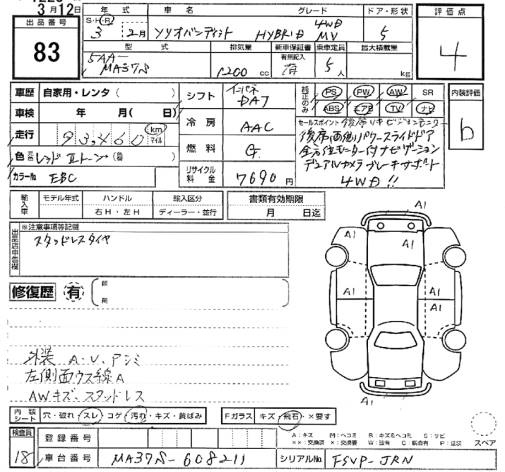 3月12日
年式 車名 グレード ドア・形状 評価点
出品番号 83
S・H・R 3年 2月 ソリオバンディット HYBRID MV 4WD 5 4
型式 排気量 新車保証書 有無記入 乗車定員 最大積載量
5AA- MA37S 1200cc 有 5人 kg
車歴 自家用・レンタ( ) シフト インパネ DA7 純正のみ PS PW AW SR 内装評価
車検 年 月( 日) 冷房 AAC ABS エアB TV ナビ b
走行 93,460 km マイル
セールスポイント
後席両側パワースライドドア
全方位モニター付ナビゲーション
デュアルカメラブレーキサポート
4WD!!
色 レッドⅡトーン( ) 燃料 G
カラーNo. EBC リサイクル料金 7690円
輸入車 モデル年式 ハンドル 輸入区分 書類有効期限
右H・左H ディーラー・並行 月 日迄
※注意事項等記載
スタッドレスタイヤ
修復歴 有 前 後
A1 A1
A1 A1
A1
外装 A・U、アシミ
左側面ウス線A
AWキズ・スタッドレス
内装 シート 穴・破れ・スレ・コゲ・汚れ・キズ・黄ばみ Fガラス キズ・飛石・×要す
スペア
検査員 18 登録番号
車台番号 MA37S-608211 シリアルNo FSVP-JRN